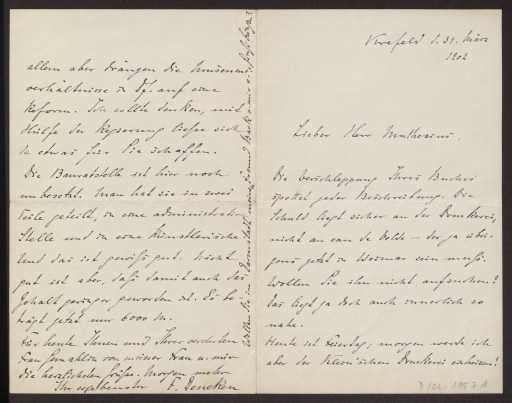 Krefeld d. 31. März
1902
Lieber Herr Muthesius,
Die Verschleppung Ihres Buches
spottet jeder Beschreibung. Die
Schuld liegt sicher an der Druckerei,
nicht an van de Velde – der ja übri-
gens jetzt in Weimar sein muß.
Wollen Sie ihn nicht aufsuchen?
Das liegt ja doch auch innerlich so
nahe.
Heute ist Feiertag; morgen werde ich
aber der Druckerei
allem aber drängen die Museums
verhältnisse in auf eine
Reform. Ich sollte denken, mit
Hülfe der Regierung ließe sich
da etwas für Sie schaffen.
Die Bauratstelle ist hier noch
unbesetzt. Man hat sie in zwei
Teile geteilt, in eine administrative
Stelle und in eine künstlerische
und das ist gewiß gut. Nicht
gut ist aber, daß damit auch das
Gehalt geringer geworden ist. Es be-
trägt jetzt nur 6000 M.
Für heute Ihnen und Ihrer verehrten
Frau Gemahlin von meiner Frau u. mir
die herzlichsten Grüße. Morgen mehr
Ihr ergebenster F. Deneken
Wollen Sie in Darmstadt meinen Freund